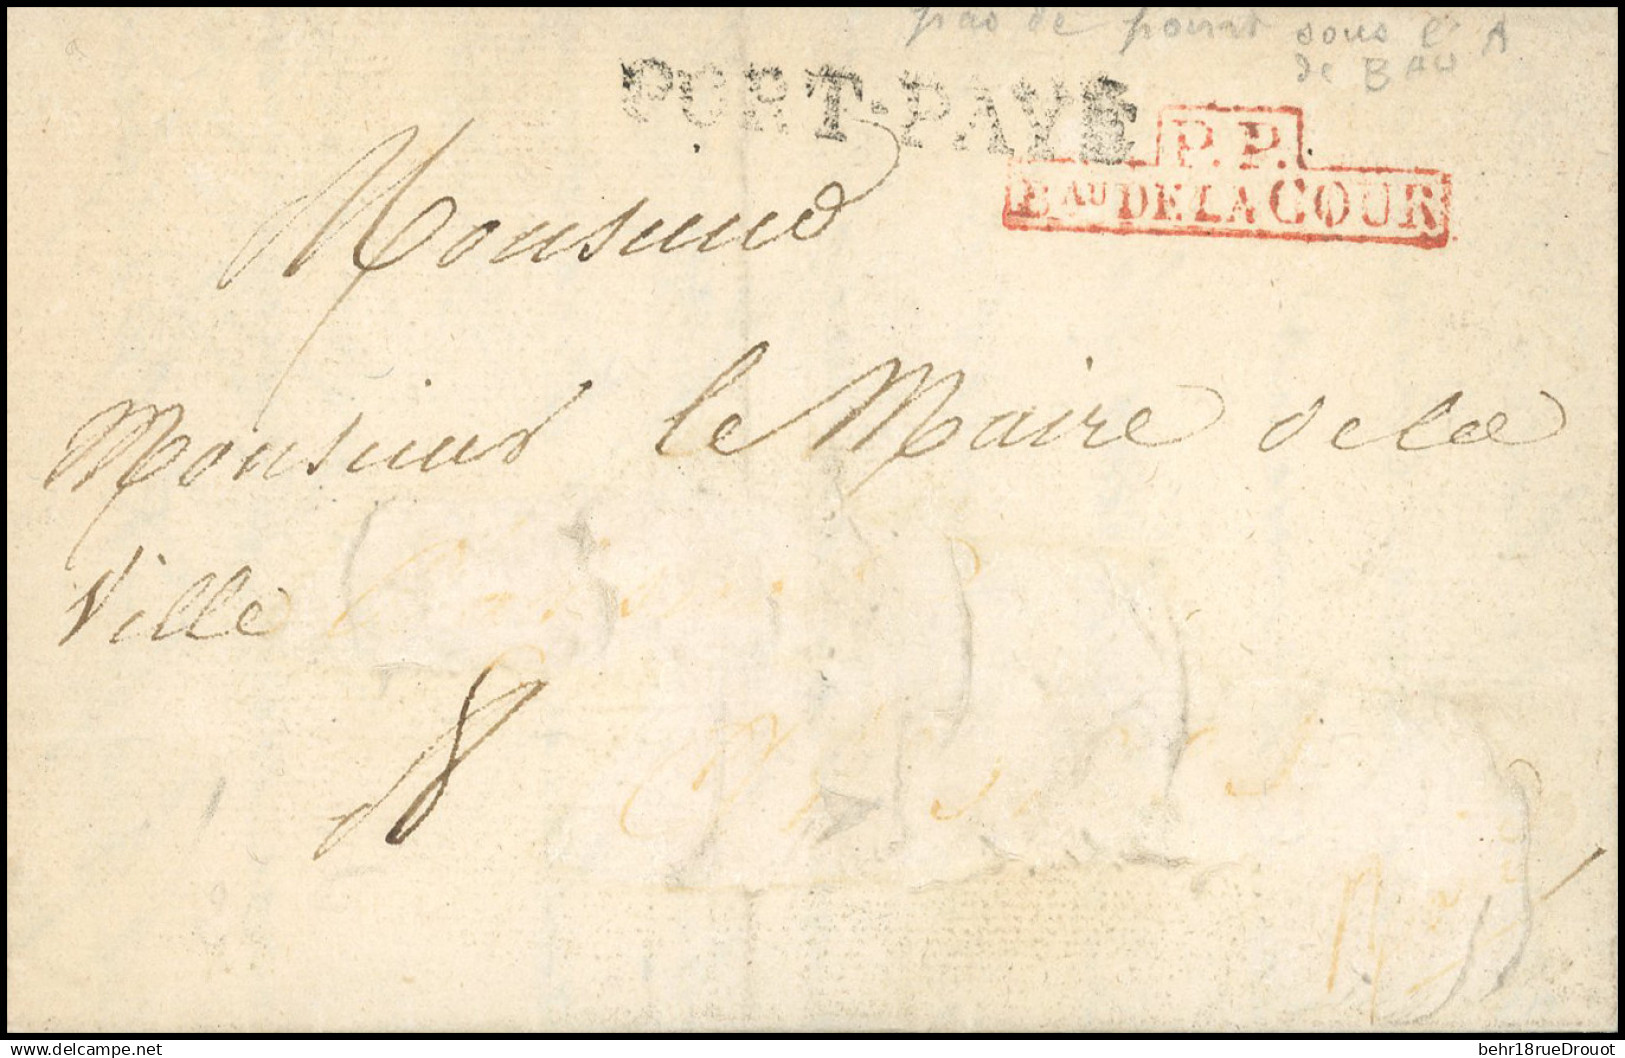 pas de point sous l'A
de BAU
PORT-PAYÉ
P.P.
BAU DE LA COUR
Monsieur
Monsieur le Maire de la
Ville
delcampe.net
behr18rueDrouot